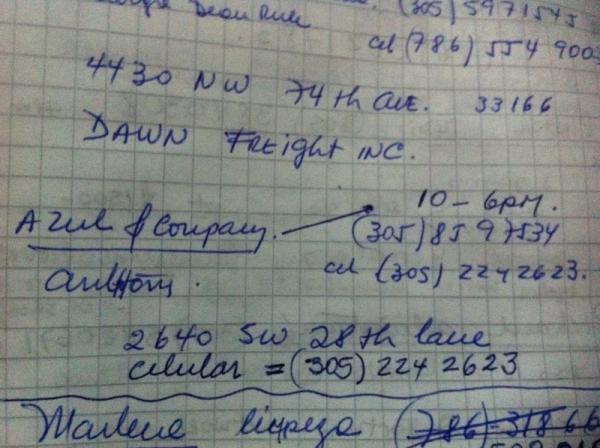 (305) 5971545
cel (786) 554 900
4430 NW 74th Ave. 33166
DAWN Freight INC.
10 - 6pm.
Azul & Company. (305) 8597534
Anthony. cel (305) 2242623.
2640 SW 28th lane
celular = (305) 224 2623
Marlene limpeza (786)-318 66